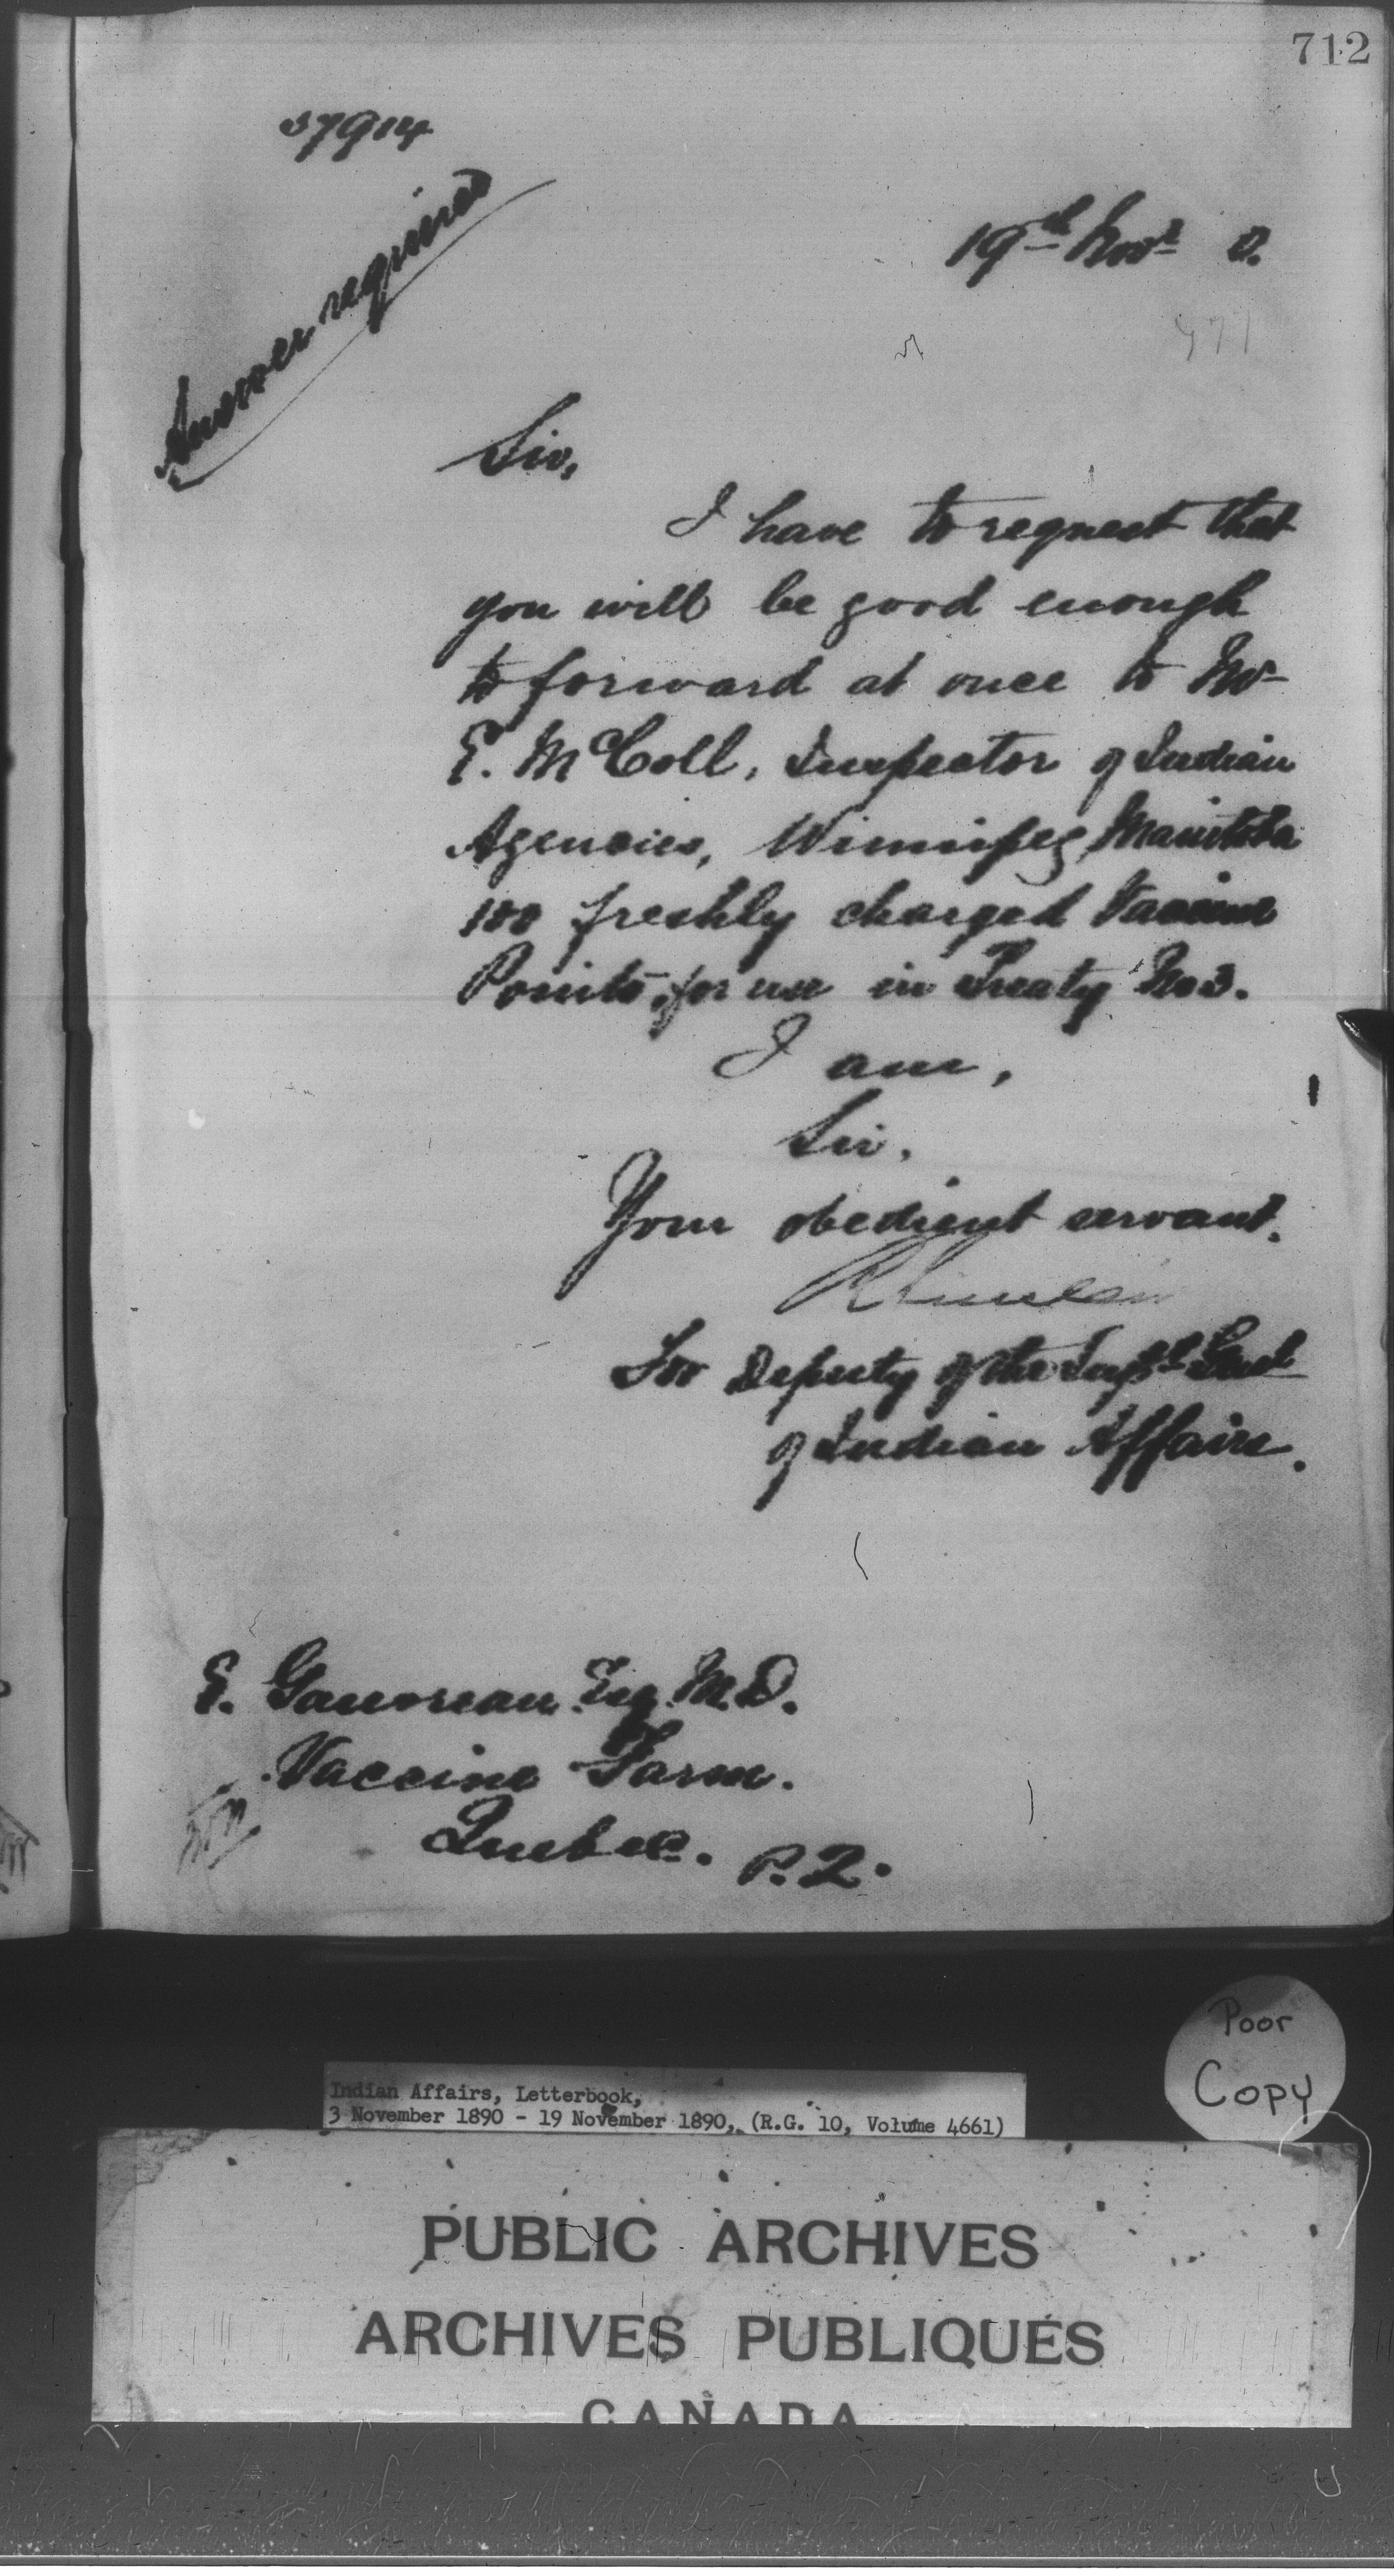 712
37914
Answer required
19th Novr 0.
Sir,
I have to request that
you will be good enough
to forward at once to Mr
E. McColl, Inspector of Indian
Agencies, Winnipeg, Manitoba
100 freshly charged Vaccine
Points, for use in Treaty No 3.
I am,
Sir,
Your obedient servant.
For Deputy of the Supt Genl
of Indian Affairs.
E. Gauvreau Esq. M.D.
Vaccine Farm.
Quebec. P.Q.
Poor
Copy
Indian Affairs, Letterbook,
3 November 1890 - 19 November 1890, (R.G. 10, Volume 4661)
PUBLIC ARCHIVES
ARCHIVES PUBLIQUES
CANADA